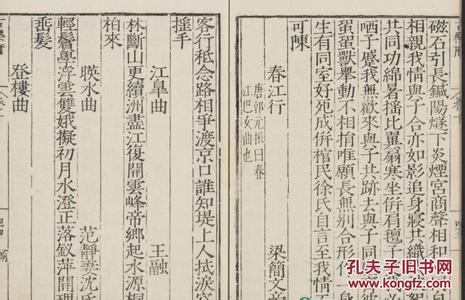 磁石引長鍼陽燧下炎煙宮商聲相和
相親我情與子合亦如影追身寢共織
共同功綿暑搖比翼扇寒坐併肩氊子
哂子感我無歡來與子共跡去與子同
蛩蛩獸舉動不相捐惟願長無別合形
生有同室好死成併棺民徐氏自言至我情
可陳
春江行
唐郭元振曰春
江巴女曲也
梁簡文
客行秪念路相爭渡京口誰知堤上人拭淚空
搖手
江臯曲
王融
林斷山更續洲盡江復開雲峰帝鄉起水源桐
柏來
映水曲
范靜妻沈氏
輕鬢學浮雲雙娥擬初月水澄正落釵萍開理
垂髮
登樓曲
孔夫子旧书网